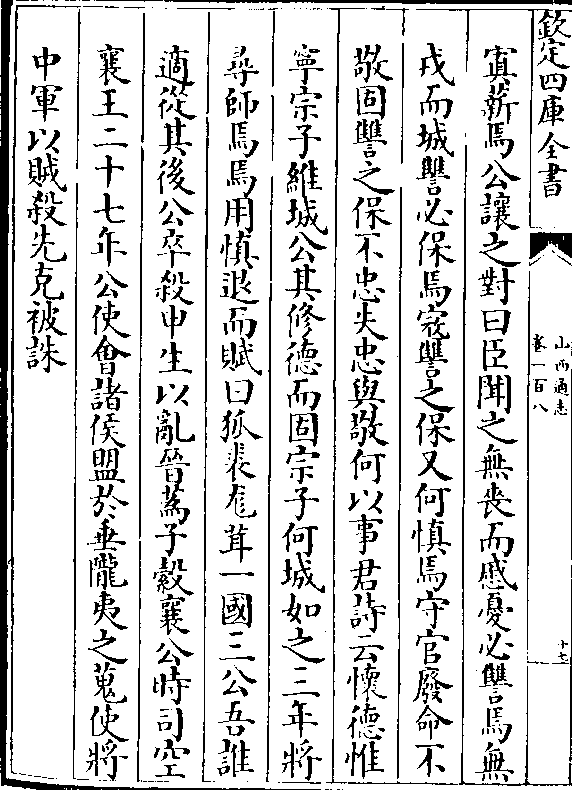 欽定四庫全書
山西通志
卷一百八
十七
寘薪焉公讓之對曰臣聞之無喪而慼憂必讐焉無
戎而城讐必保焉寇讐之保又何慎焉守官廢命不
敬固讐之保不忠失忠與敬何以事君詩云懷德惟
寧宗子維城公其修德而固宗子何城如之三年將
尋師焉焉用慎退而賦曰狐裘尨茸一國三公吾誰
適從其後公卒殺申生以亂晉蒍子縠襄公時司空
襄王二十七年公使會諸侯盟於垂隴夷之蒐使將
中軍以賊殺先克被誅